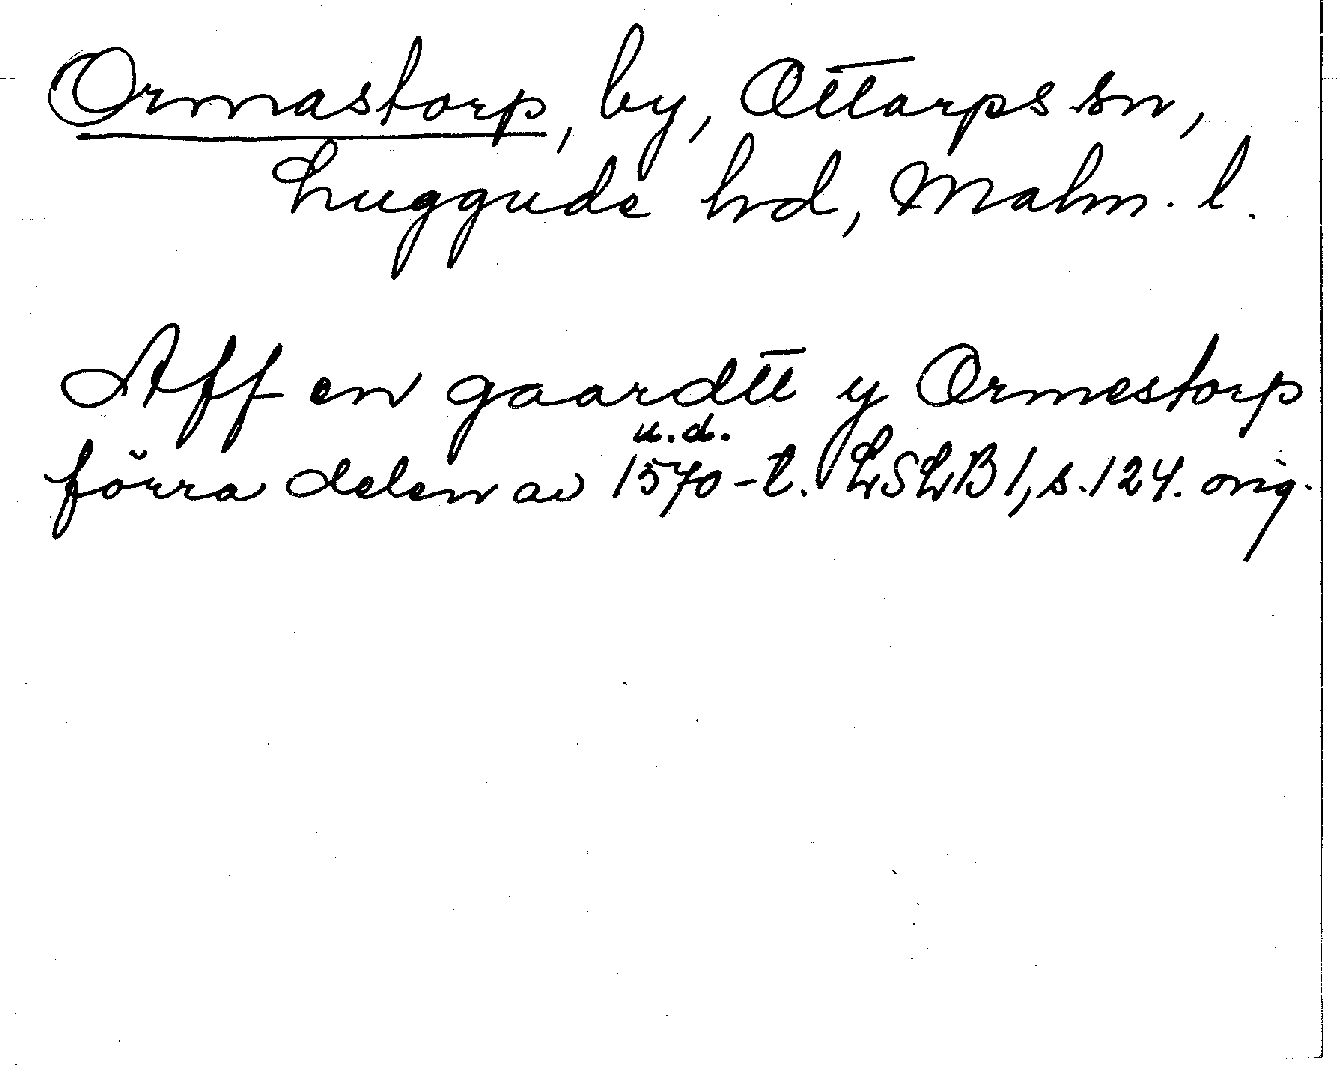 Ormastorp, by, Ottarps sn,
Luggude hd, Malm. l.
Aff en gaardtt y Ormestorp
u.d.
förra delen av 1570-t. LSLB 1, s. 124. orig.